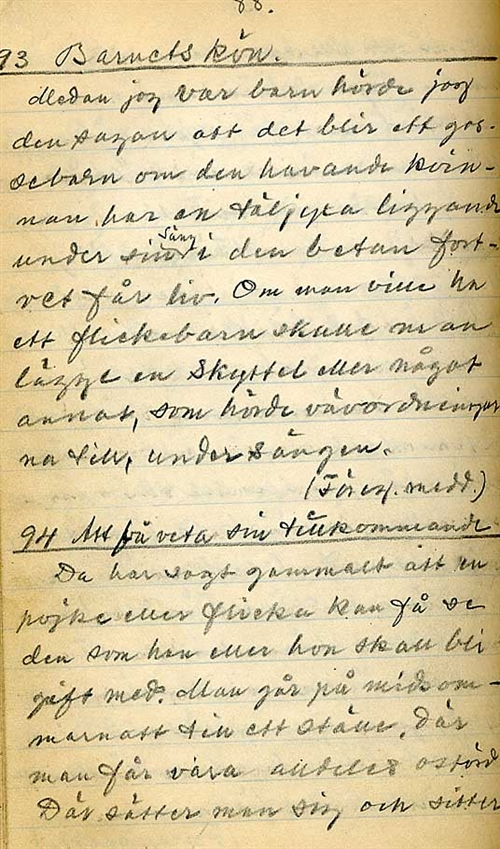 88.
93 Barnets kön.
Medan jag var barn hörde jag
den sagan att det blir ett gos-
sebarn om den havande kvin-
nan har en täljyxa liggande
under sin säng i den betan fost-
ret får liv. Om man ville ha
ett flickebarn skulle man
lägge en Skyttel eller något
annat, som hörde vävordningar
na till, under sängen.
(Föreg. medd.)
94 Att få veta sin tillkommande
Da har sagt gammalt att en
pojke eller flicka kan få se
den som han eller hon skall bli
gift med. Man går på midsom-
marnatt till ett ställe, där
man får vara alldeles ostörd
Där sätter man sig och sitter